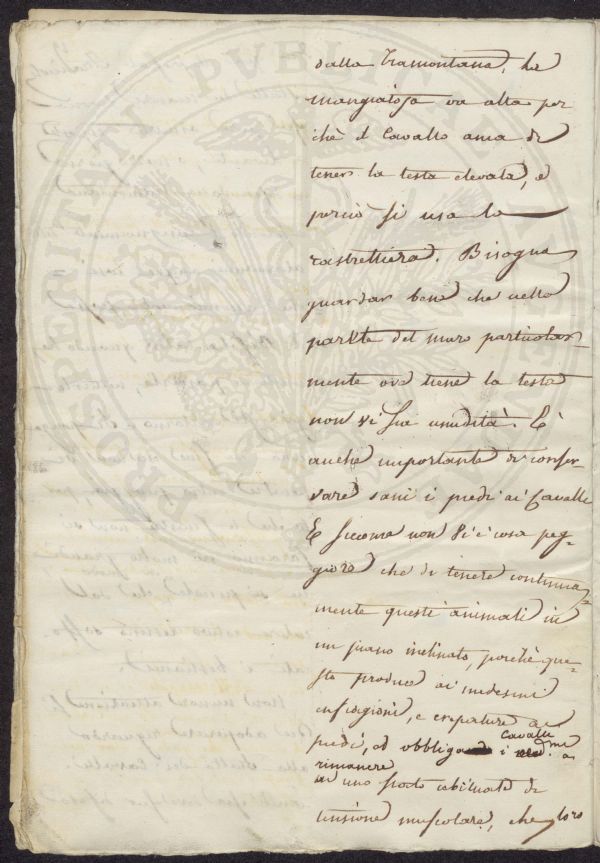 dalla Tramontana, la
mangiatoja va alta per
chè il Cavallo ama di
tener la testa elevata, e
perciò si usa la
rastrelliera. Bisogna
guardar bene che nella
parete del muro particolar-
mente ove tiene la testa
non vi sia umidità. È
anche importante di conser-
vare sani i piedi ai Cavalli
E siccome non vi è cosa peg-
giore che di tenere continua-
mente questi animali in
un piano inclinato, perchè que-
sto produce ai medesimi
enfiagioni, e crepature ai
piedi, ed obbliga i Cavalli a
rimanere
in uno stato abituale di
tensione muscolare, che loro
PROSPERITATI PVBLICAE AVGENDAE